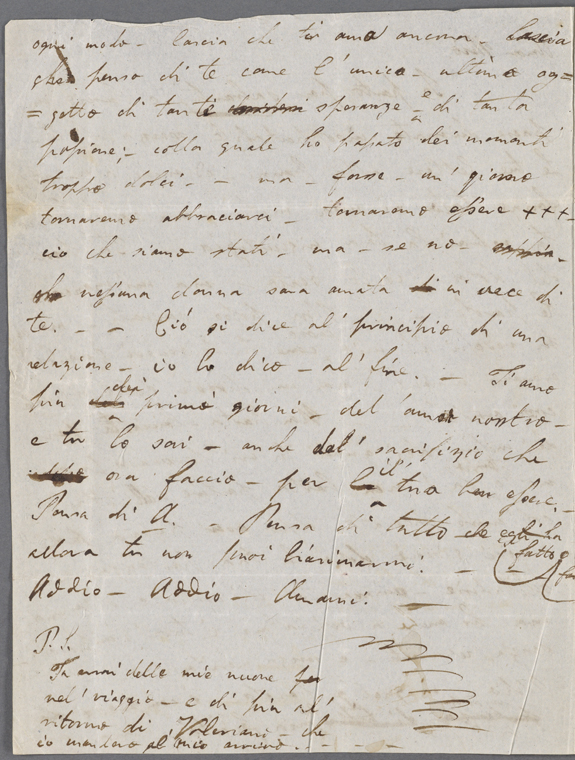 ogni modo – lascia che ti ama ancora – lascia
che penso di te come l'unico – ultimo og=
=getto di tanti speranze – e di tanta
passione; – colla quale ho passato dei momenti
troppo dolci – – ma – forse – un' giorno
tornaremo abbraciarci – tornaremo essere +++
ciò che siamo stati' – ma – se no –
nessuna donna sara amata in vece di
te. – – Ciò si dice al' principio di una
relazione – io lo dico – al' fine. – Ti amo
piu dei primi giorni – del' amor nostro –
e tu lo sai – anche del' sacrifizio che
ora faccio – per il tuo ben essere. –
Pensa di A. – Pensa di tutto che egli ha fatto e
allora tu non puoi biasimarmi. –
Addio – Addio – Amami. –
P.S.
Tu avrai delle mie nuove
nel' viaggio – e di piu al'
ritorno di Valeriano – che
io mandaro al mio arrivo. – – –